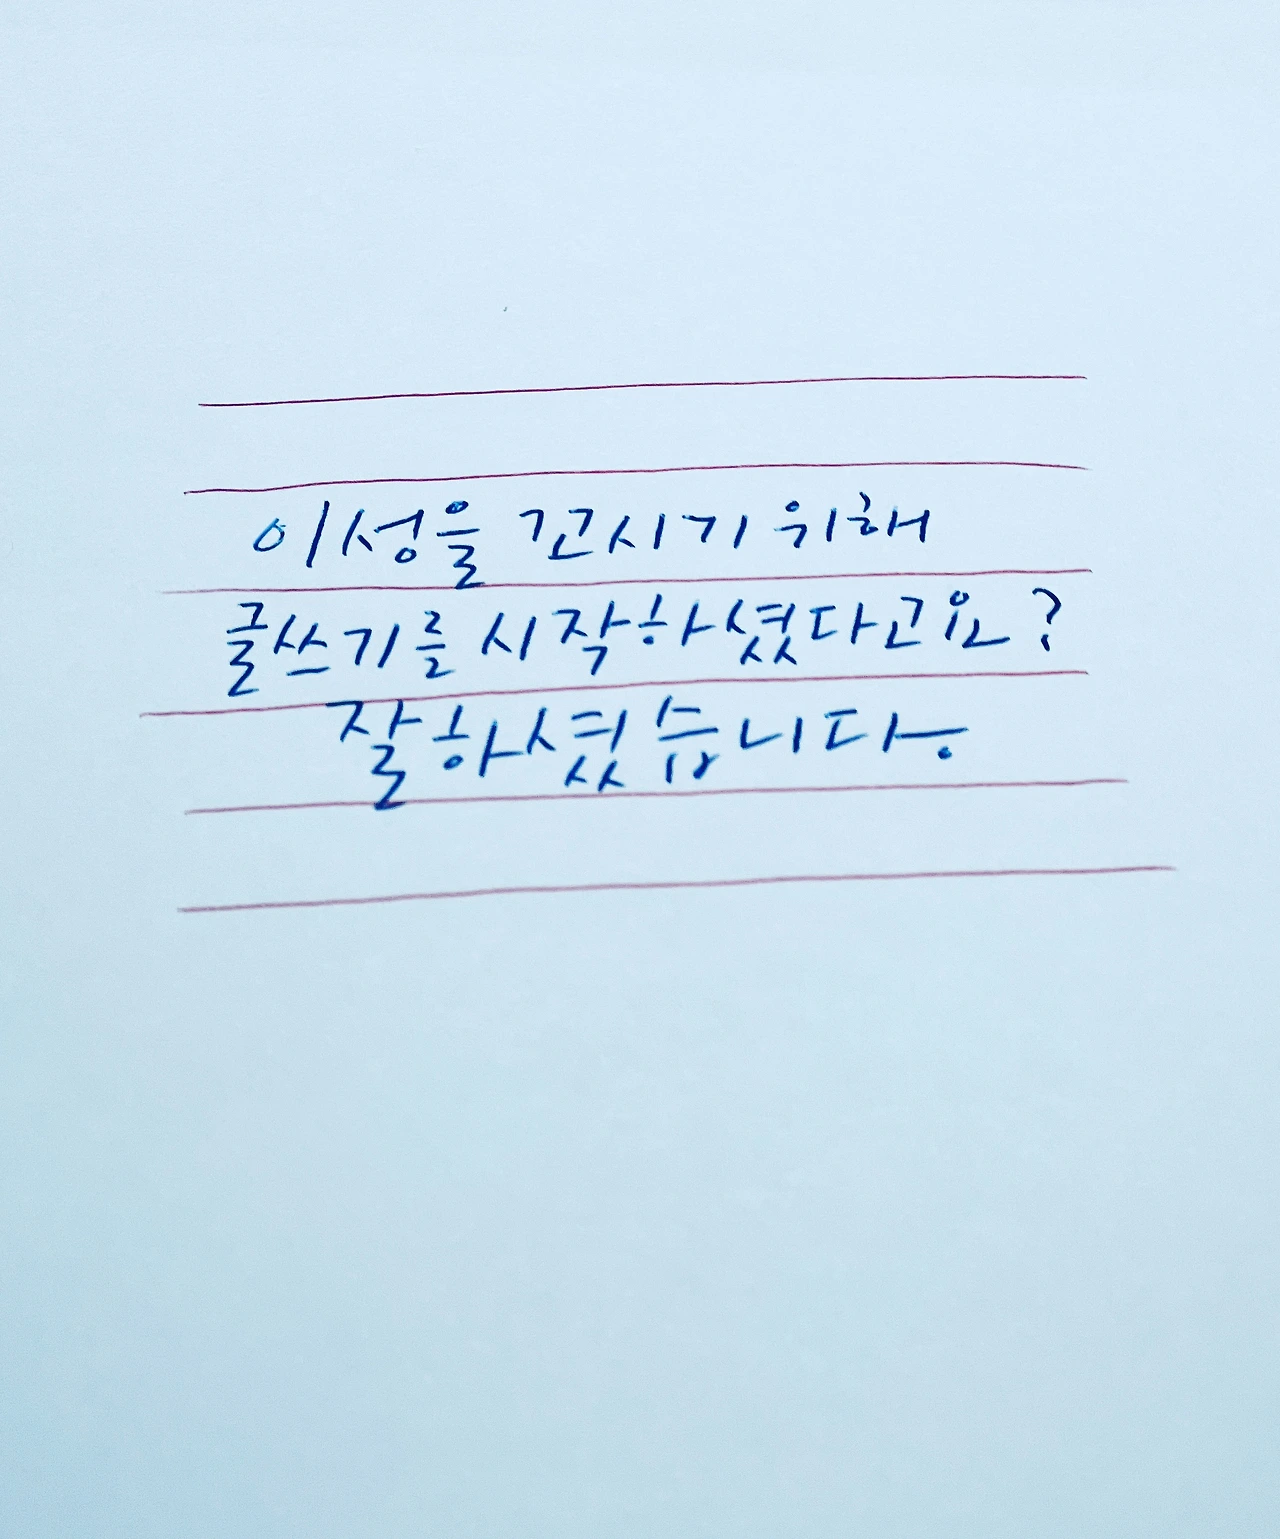 이성을 꼬시기 위해
글쓰기를 시작하셨다고요?
잘하셨습니다.